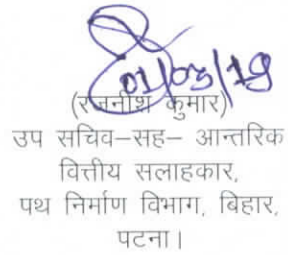 01/03/19
(रजनीश कुमार)
उप सचिव–सह– आन्तरिक
वित्तीय सलाहकार,
पथ निर्माण विभाग, बिहार,
पटना।